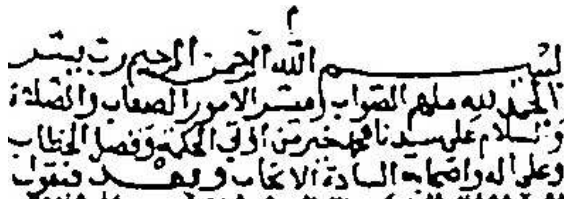 م
بسم الله الرحمن الرحيم رب يسر
الحمد لله ملهم الصواب وميسر الامور الصعاب والصلاة
والسلام على سيدنا محمد خير من اوتي الحكمة وفصل الخطاب
وعلى اله واصحابه السادة الانجاب وبعد فيقول